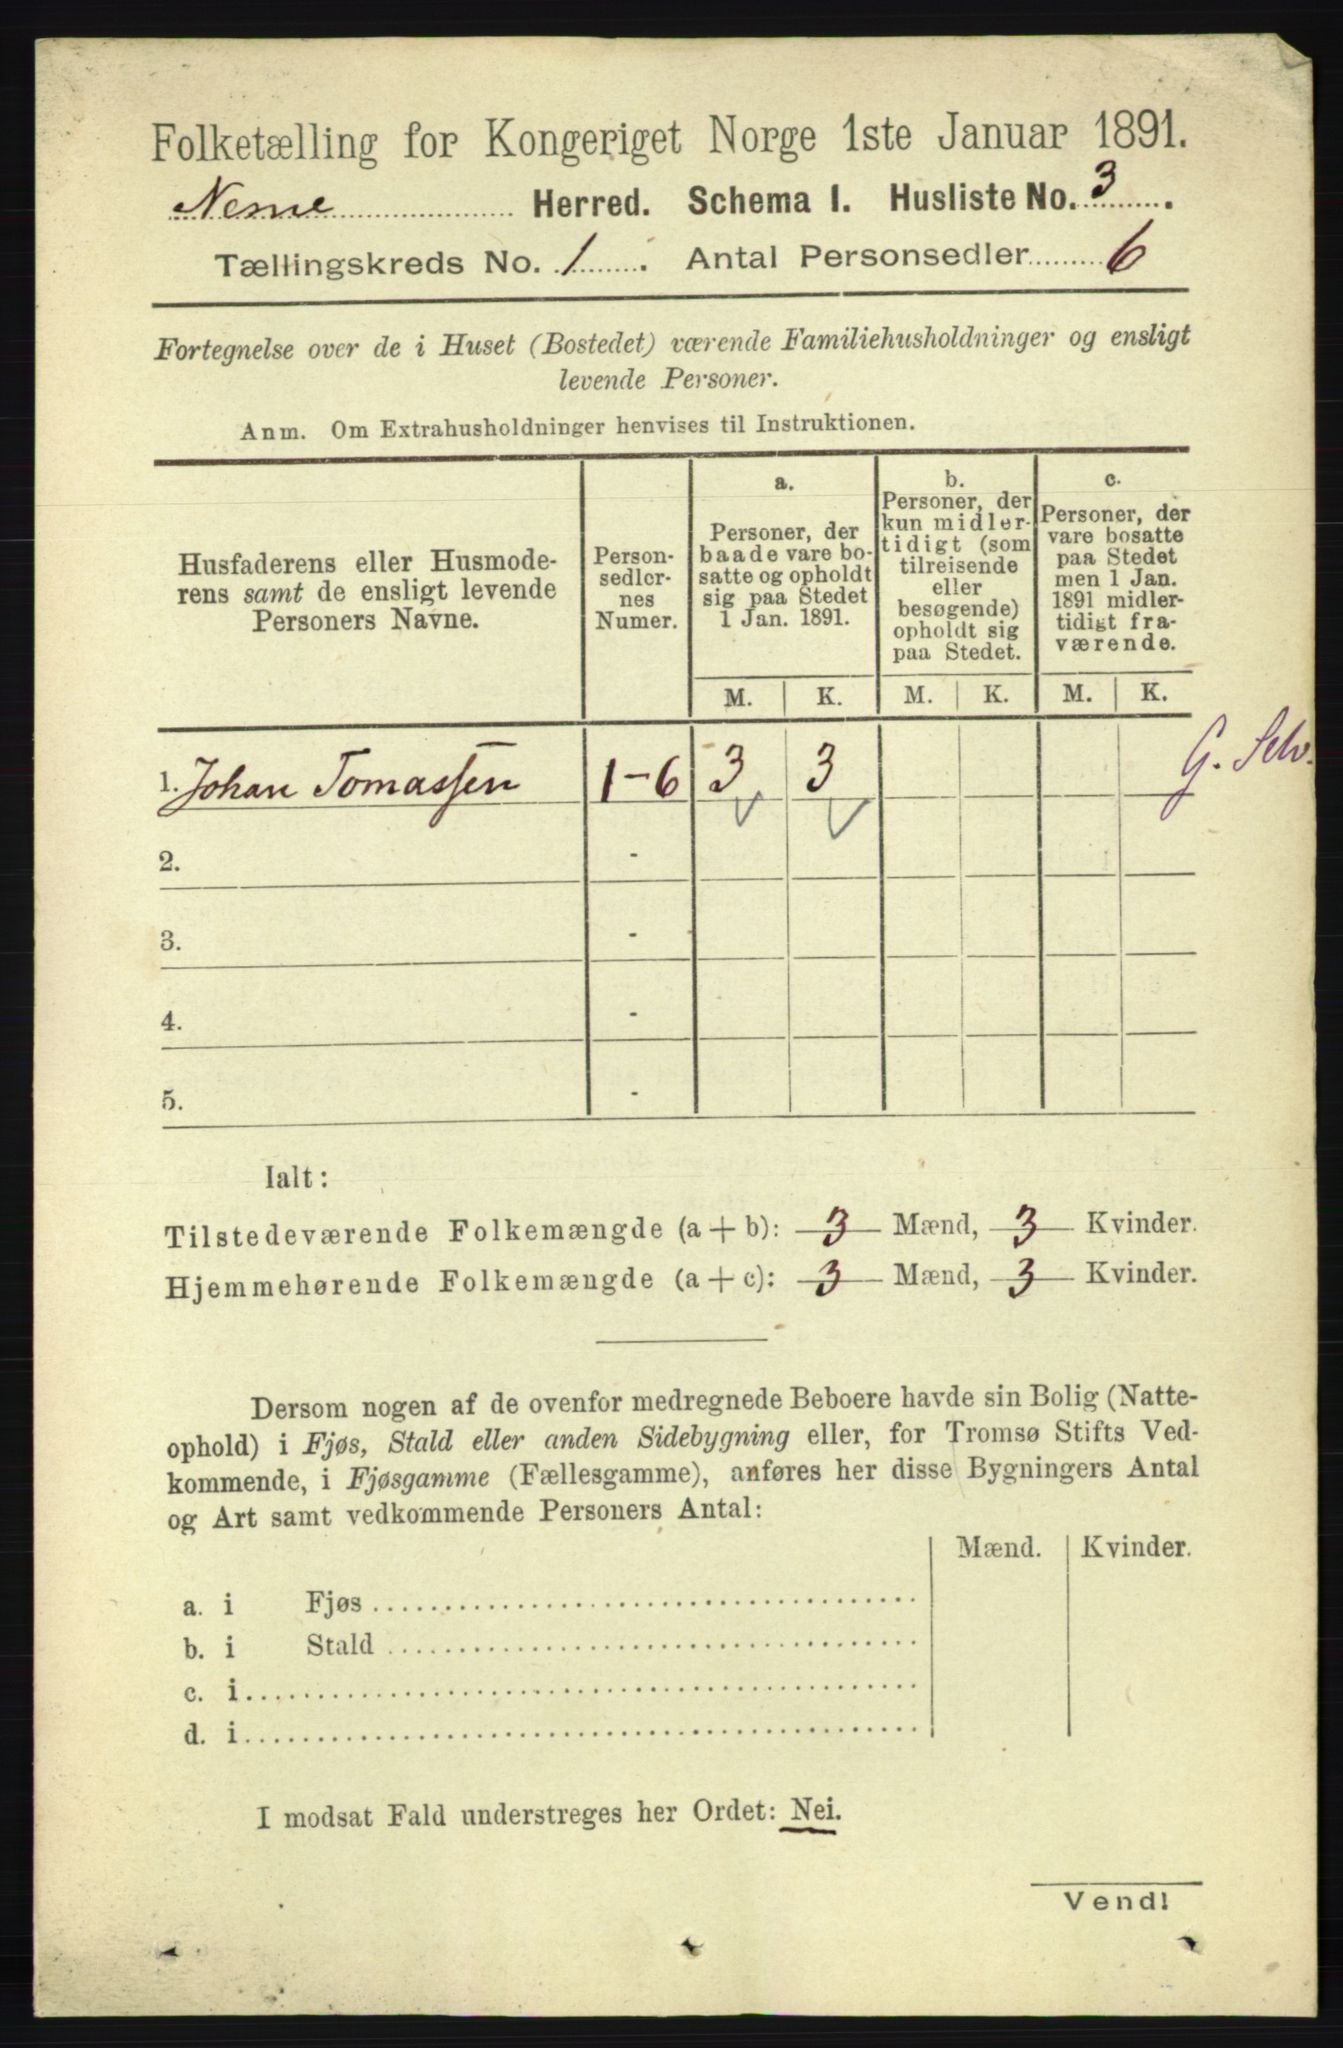 Folketælling for Kongeriget Norge 1ste Januar 1891.
Nesne Herred. Schema I. Husliste No. 3.
Tællingskreds No. 1. Antal Personsedler 6
Fortegnelse over de i Huset (Bostedet) værende Familiehusholdninger og ensligt
levende Personer.
Anm. Om Extrahusholdninger henvises til Instruktionen.
Husfaderens eller Husmode-
rens samt de ensligt levende
Personers Navne.
Person-
sedler-
nes
Numer.
a.
Personer, der
baade vare bo-
satte og opholdt
sig paa Stedet
1 Jan. 1891.
b.
Personer, der
kun midler-
tidigt (som
tilreisende
eller
besøgende)
opholdt sig
paa Stedet.
c.
Personer, der
vare bosatte
paa Stedet
men 1 Jan.
1891 midler-
tidigt fra-
værende.
M. K. M. K. M. K.
1. Johan Tomassen 1-6 3 3 G. Selv.
2. -
3. -
4. -
5. -
Ialt:
Tilstedeværende Folkemængde (a + b): 3 Mænd, 3 Kvinder.
Hjemmehørende Folkemængde (a + c): 3 Mænd, 3 Kvinder.
Dersom nogen af de ovenfor medregnede Beboere havde sin Bolig (Natte-
ophold) i Fjøs, Stald eller anden Sidebygning eller, for Tromsø Stifts Ved-
kommende, i Fjøsgamme (Fællesgamme), anføres her disse Bygningers Antal
og Art samt vedkommende Personers Antal:
Mænd. Kvinder.
a. i Fjøs
b. i Stald
c. i
d. i
I modsat Fald understreges her Ordet: Nei.
Vend!